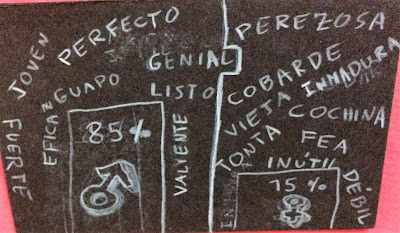 JOVEN
PERFECTO
GENIAL
GUAPO
LISTO
EFICAZ
FUERTE
VALIENTE
85%
PEREZOSA
COBARDE
INMADURA
VIEJA
COCHINA
TONTA
FEA
INÚTIL
DÉBIL
15%